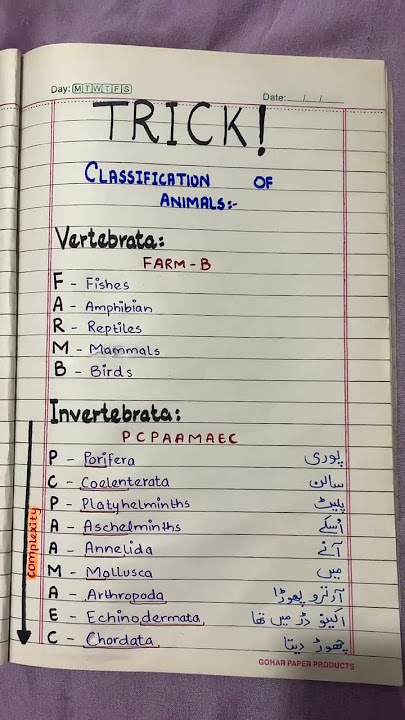 Day: M T W T F S
Date: __/__/__
TRICK!
CLASSIFICATION OF
ANIMALS:-
Vertebrata:
FARM-B
F - Fishes
A - Amphibian
R - Reptiles
M - Mammals
B - Birds
Invertebrata:
PCPAAMAEC
P - Porifera پوری
C - Coelenterata سالن
P - Platyhelminths پلیٹ
A - Aschelminths اسکے
A - Annelida آنے
M - Mollusca میں
A - Arthropoda آرترو پھوڑا
E - Echinodermata اکینو ڈر میں تھا
C - Chordata چھوڑ دیتا
complexity
GOHAR PAPER PRODUCTS